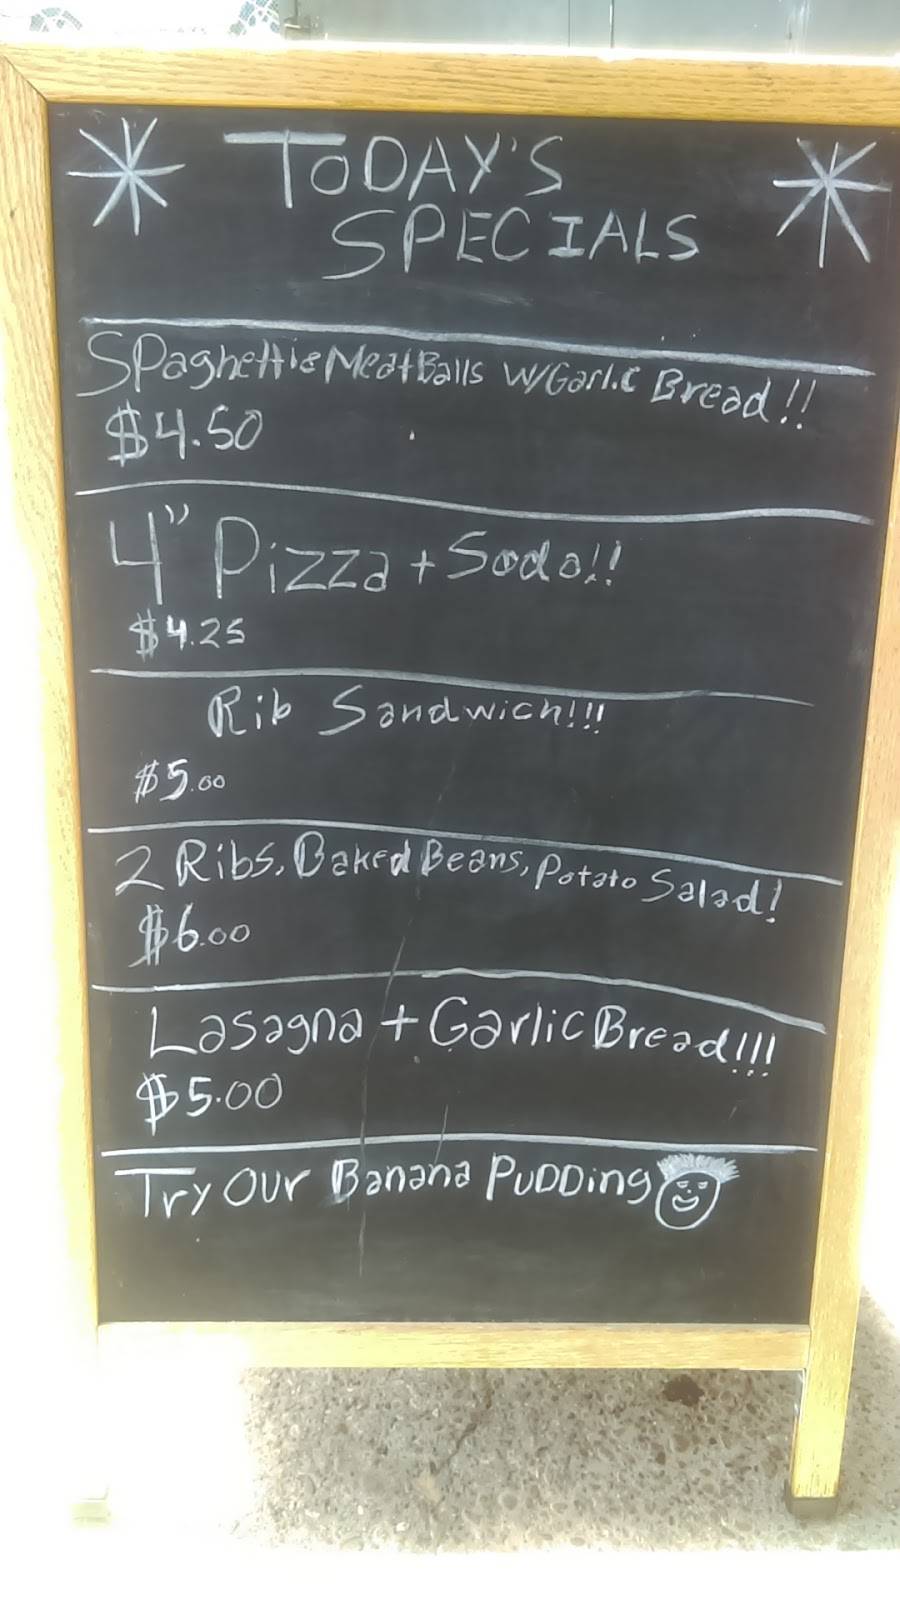 TODAY'S
SPECIALS
Spaghetti & MeatBalls w/Garlic Bread!!
$4.50
4" Pizza + Soda!!
$4.25
Rib Sandwich!!!
$5.00
2 Ribs, Baked Beans, Potato Salad!
$6.00
Lasagna + Garlic Bread!!!
$5.00
Try Our Banana PuDDing